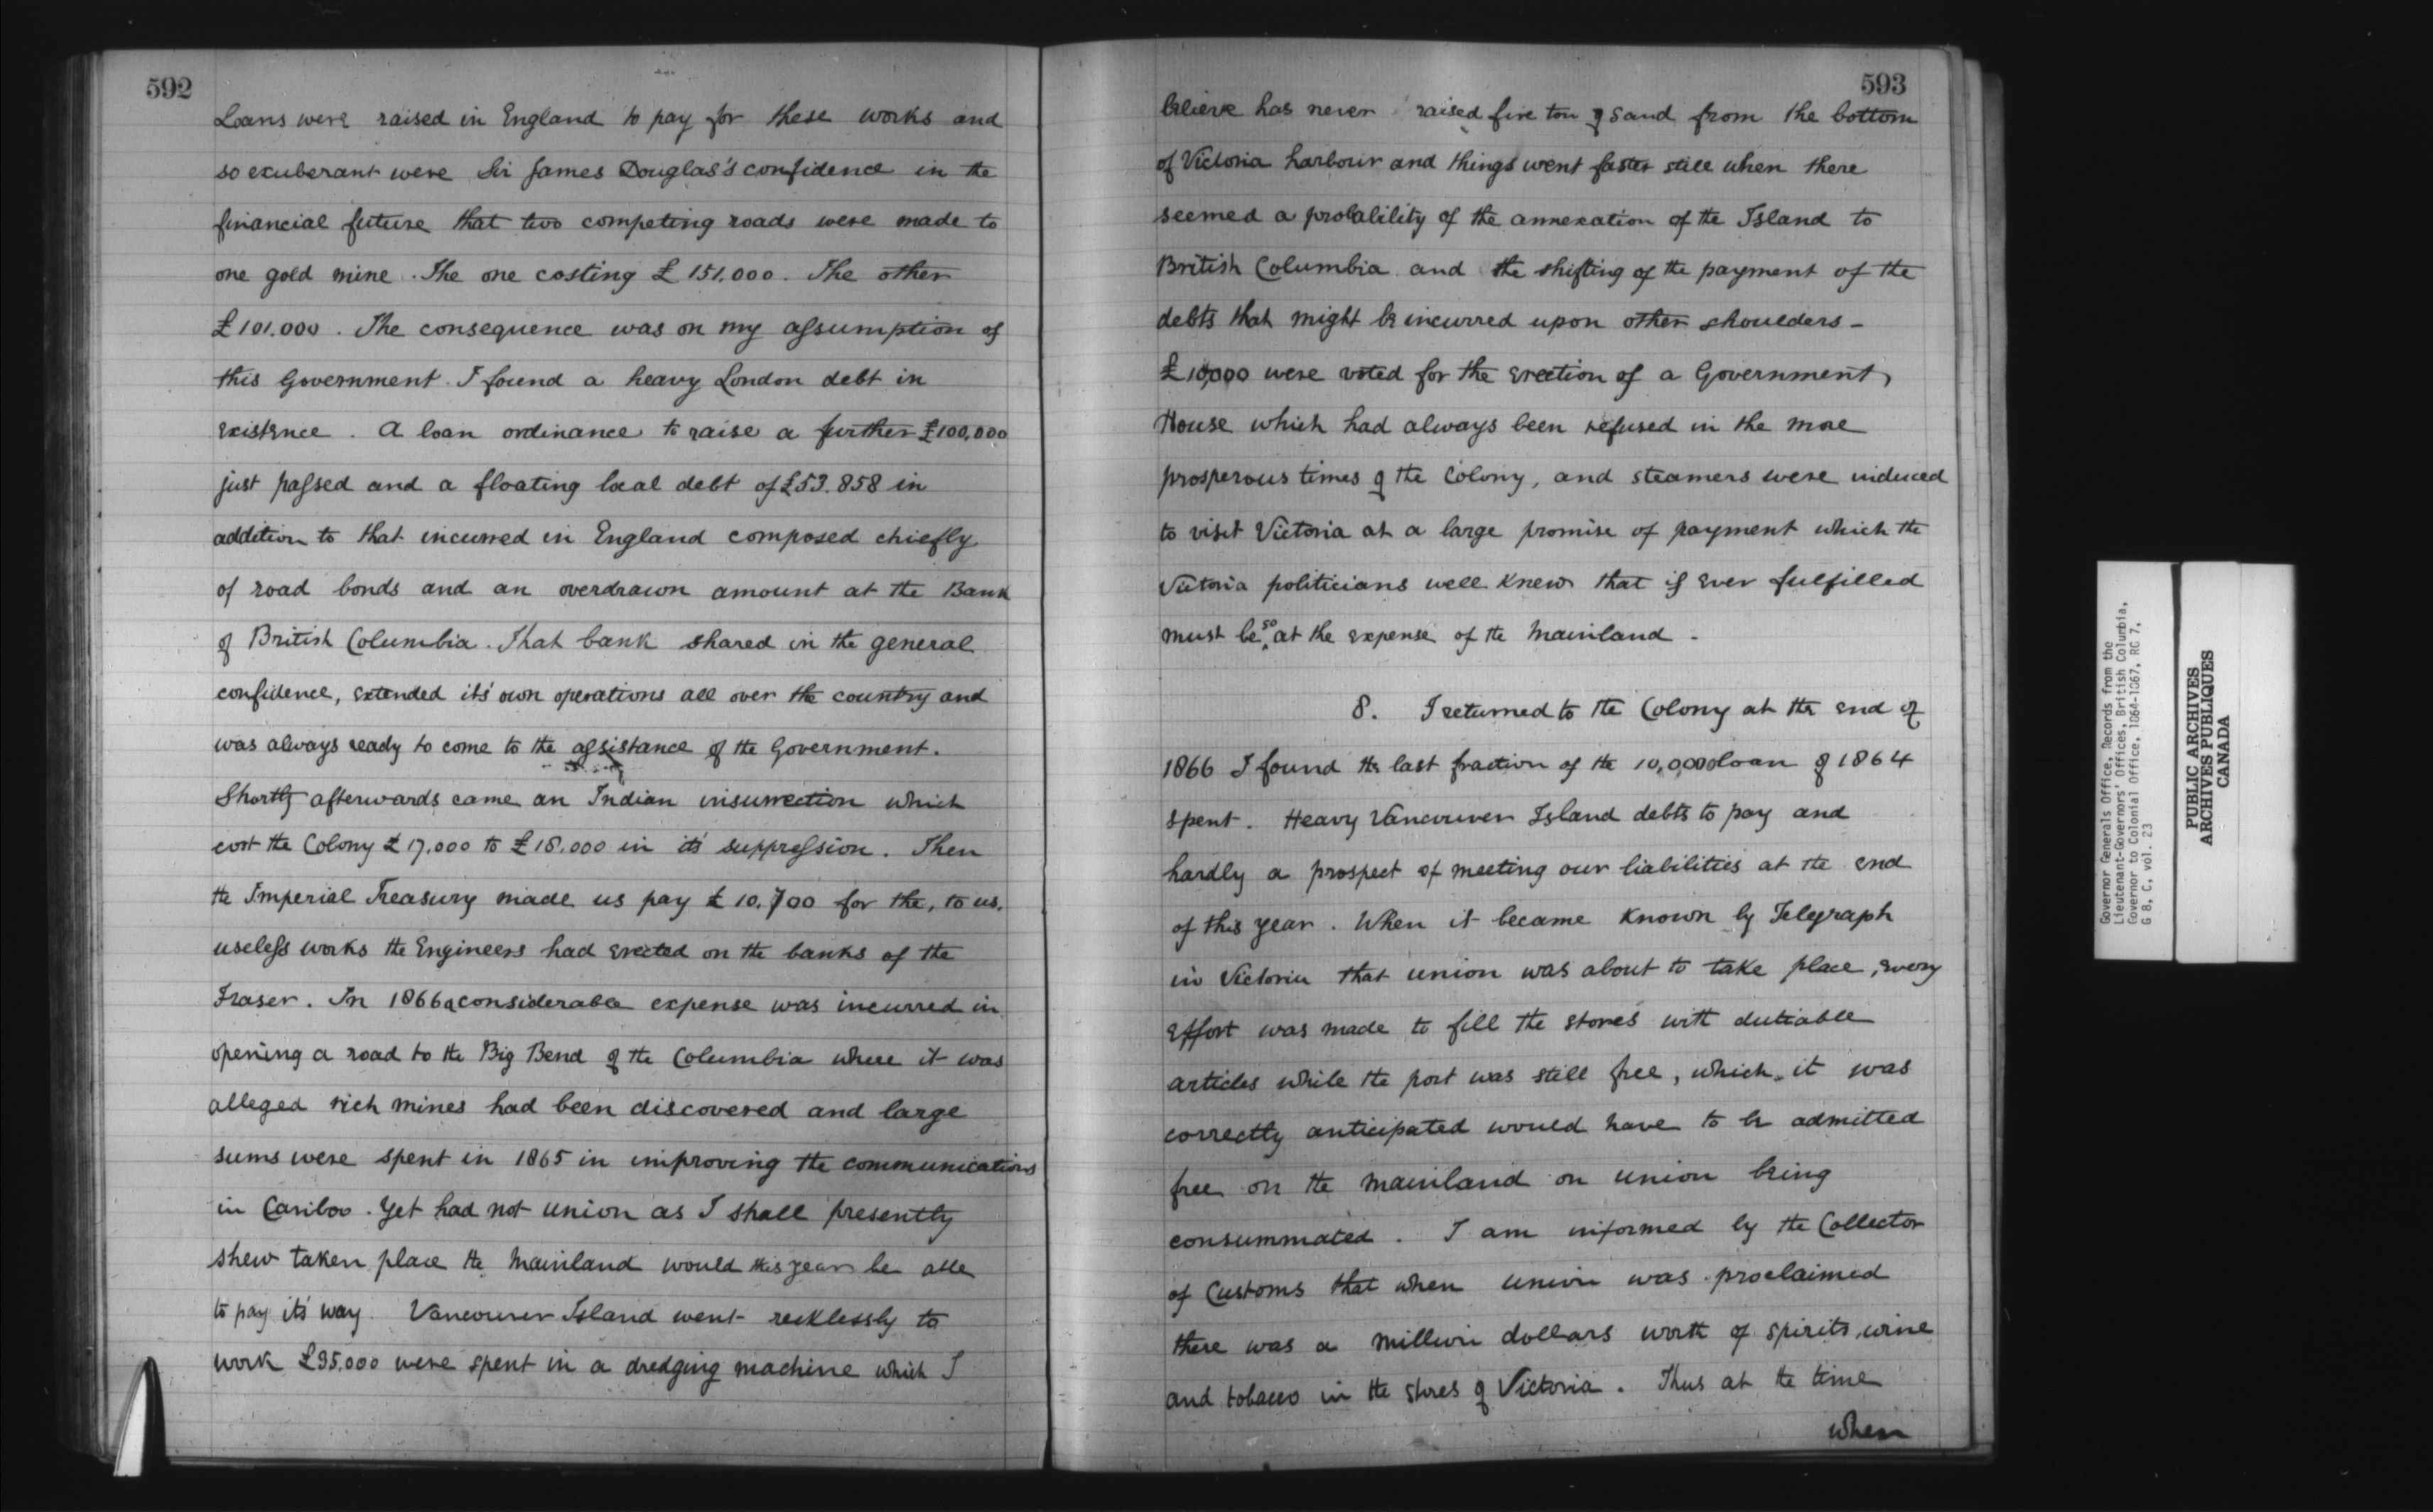 592
Loans were raised in England to pay for these works and
so exuberant were Sir James Douglas's confidence in the
financial future that two competing roads were made to
one gold mine. The one costing £151.000. The other
£101.000. The consequence was on my assumption of
this Government I found a heavy London debt in
existence. A loan ordinance to raise a further £100,000
just passed and a floating local debt of £53.858 in
addition to that incurred in England composed chiefly
of road bonds and an overdrawn amount at the Bank
of British Columbia. That bank shared in the general
confidence, extended it's own operations all over the country and
was always ready to come to the assistance of the Government.
Shortly afterwards came an Indian insurrection which
cost the Colony £17.000 to £18.000 in it's suppression. Then
the Imperial Treasury made us pay £10.700 for the, to us,
useless works the Engineers had erected on the banks of the
Fraser. In 1866 a considerable expense was incurred in
opening a road to the Big Bend of the Columbia where it was
alleged rich mines had been discovered and large
sums were spent in 1865 in improving the communications
in Cariboo. Yet had not union as I shall presently
shew taken place the Mainland would this year be able
to pay it's way. Vancouver Island went recklessly to
work £95.000 were spent in a dredging machine which I
593
believe has never raised five ton of sand from the bottom
of Victoria harbour and things went faster still when there
seemed a probability of the annexation of the Island to
British Columbia and the shifting of the payment of the
debts that might be incurred upon other shoulders -
£10,000 were voted for the erection of a Government
House which had always been refused in the more
prosperous times of the Colony, and steamers were induced
to visit Victoria at a large promise of payment which the
Victoria politicians well knew that if ever fulfilled
must be so at the expense of the Mainland -
8. I returned to the Colony at the end of
1866 I found the last fraction of the loan of 1864
spent. Heavy Vancouver Island debts to pay and
hardly a prospect of meeting our liabilities at the end
of this year. When it became known by Telegraph
in Victoria that union was about to take place, every
effort was made to fill the stores with dutiable
articles while the port was still free, which it was
correctly anticipated would have to be admitted
free on the mainland on union being
consummated. I am informed by the Collector
of Customs that when union was proclaimed
there was a million dollars worth of spirits, wine
and tobacco in the stores of Victoria. Thus at the time
when
Governor Generals Office, Records from the
Lieutenant-Governors' Offices, British Columbia,
Governor to Colonial Office, 1864-1867, RG 7,
G 8, C, vol. 23
PUBLIC ARCHIVES
ARCHIVES PUBLIQUES
CANADA